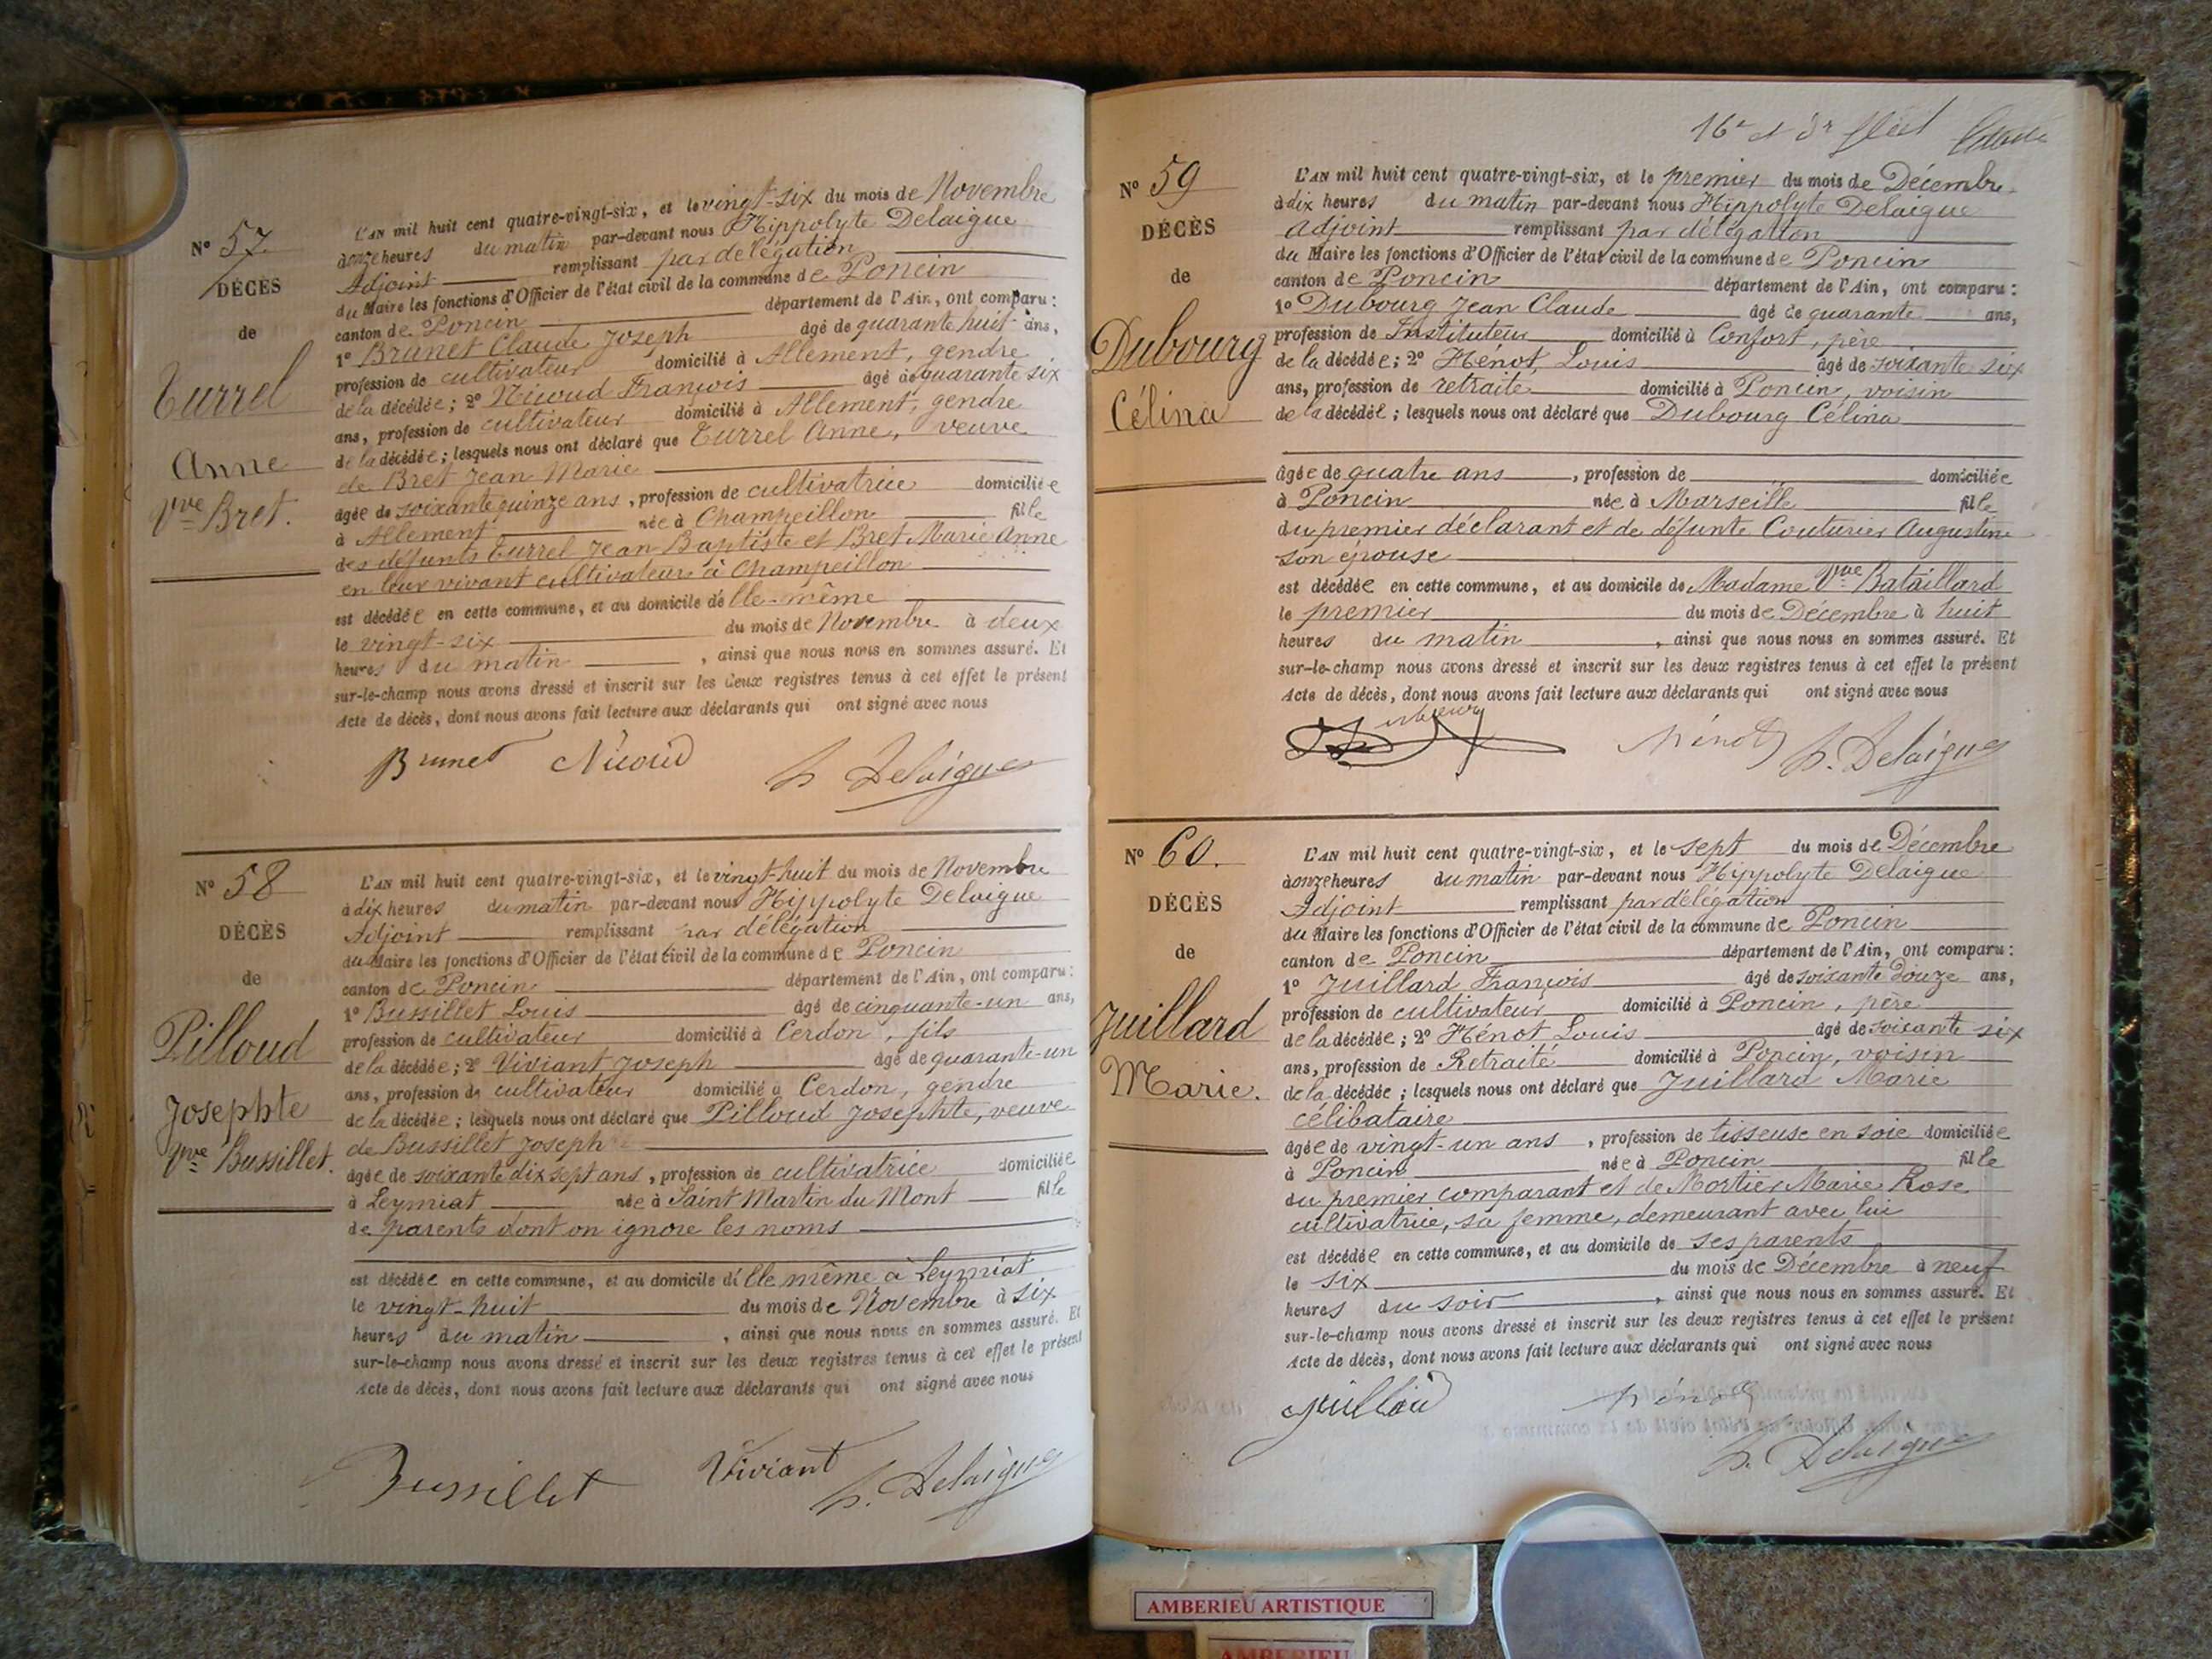 No 57.
DÉCÈS
de
Turrel
Anne
Vve Bret.
L'AN mil huit cent quatre-vingt-six, et le vingt-six du mois de Novembre
à onze heures du matin par-devant nous Hippolyte Delaigue
Adjoint remplissant par délégation
du Maire les fonctions d'Officier de l'état civil de la commune de Poncin
canton de Poncin département de l'Ain, ont comparu :
1o Brunet Claude Joseph âgé de quarante huit ans,
profession de cultivateur domicilié à Allement, gendre
de la décédée ; 2o Nicoud François âgé de quarante six
ans, profession de cultivateur domicilié à Allement, gendre
de la décédée ; lesquels nous ont déclaré que Turrel Anne, veuve
de Bret Jean Marie
âgée de soixante quinze ans, profession de cultivatrice domiciliée
à Allement née à Champeillon fille
des défunts Turrel Jean Baptiste et Bret Marie Anne
en leur vivant cultivateurs à Champeillon
est décédée en cette commune, et au domicile d'elle-même
le vingt-six du mois de Novembre à deux
heures du matin, ainsi que nous nous en sommes assuré. Et
sur-le-champ nous avons dressé et inscrit sur les deux registres tenus à cet effet le présent
Acte de décès, dont nous avons fait lecture aux déclarants qui ont signé avec nous
Brunet Nicoud h Delaigue
No 58
DÉCÈS
de
Pilloud
Josephte
Vve Bussillet.
L'AN mil huit cent quatre-vingt-six, et le vingt-huit du mois de Novembre
à dix heures du matin par-devant nous Hippolyte Delaigue
Adjoint remplissant par délégation
du Maire les fonctions d'Officier de l'état civil de la commune de Poncin
canton de Poncin département de l'Ain, ont comparu :
1o Bussillet Louis âgé de cinquante-un ans,
profession de cultivateur domicilié à Cerdon, fils
de la décédée ; 2o Viviant Joseph âgé de quarante-un
ans, profession de cultivateur domicilié à Cerdon, gendre
de la décédée ; lesquels nous ont déclaré que Pilloud Josephte, veuve
de Bussillet Joseph
âgée de soixante dix sept ans, profession de cultivatrice domiciliée
à Leymiat née à Saint Martin du Mont fille
de parents dont on ignore les noms
est décédée en cette commune, et au domicile d'elle même à Leymiat
le vingt-huit du mois de Novembre à six
heures du matin, ainsi que nous nous en sommes assuré. Et
sur-le-champ nous avons dressé et inscrit sur les deux registres tenus à cet effet le présent
Acte de décès, dont nous avons fait lecture aux déclarants qui ont signé avec nous
Bussillet Viviant h. Delaigue
16e et dr
No 59
DÉCÈS
de
Dubourg
Célina
L'AN mil huit cent quatre-vingt-six, et le premier du mois de Décembre
à dix heures du matin par-devant nous Hippolyte Delaigue
Adjoint remplissant par délégation
du Maire les fonctions d'Officier de l'état civil de la commune de Poncin
canton de Poncin département de l'Ain, ont comparu :
1o Dubourg Jean Claude âgé de quarante ans,
profession de Instituteur domicilié à Confort, père
de la décédée ; 2o Hénot, Louis âgé de soixante six
ans, profession de retraité domicilié à Poncin, voisin
de la décédée ; lesquels nous ont déclaré que Dubourg Célina
âgée de quatre ans, profession de domiciliée
à Poncin née à Marseille fille
du premier déclarant et de défunte Couturier Augustine
son épouse
est décédée en cette commune, et au domicile de Madame Vve Bataillard
le premier du mois de Décembre à huit
heures du matin, ainsi que nous nous en sommes assuré. Et
sur-le-champ nous avons dressé et inscrit sur les deux registres tenus à cet effet le présent
Acte de décès, dont nous avons fait lecture aux déclarants qui ont signé avec nous
Hénot h. Delaigue
No 60.
DÉCÈS
de
Juillard
Marie.
L'AN mil huit cent quatre-vingt-six, et le sept du mois de Décembre
à onze heures du matin par-devant nous Hippolyte Delaigue
Adjoint remplissant par délégation
du Maire les fonctions d'Officier de l'état civil de la commune de Poncin
canton de Poncin département de l'Ain, ont comparu :
1o Juillard François âgé de soixante douze ans,
profession de cultivateur domicilié à Poncin, père
de la décédée ; 2o Hénot Louis âgé de soixante six
ans, profession de Retraité domicilié à Poncin, voisin
de la décédée ; lesquels nous ont déclaré que Juillard Marie
célibataire
âgée de vingt-un ans, profession de tisseuse en soie domiciliée
à Poncin née à Poncin fille
du premier comparant et de Mortier Marie Rose
cultivatrice, sa femme, demeurant avec lui
est décédée en cette commune, et au domicile de ses parents
le six du mois de Décembre à neuf
heures du soir, ainsi que nous nous en sommes assuré. Et
sur-le-champ nous avons dressé et inscrit sur les deux registres tenus à cet effet le présent
Acte de décès, dont nous avons fait lecture aux déclarants qui ont signé avec nous
Hénot
h. Delaigue
AMBERIEU ARTISTIQUE
AMBERIEU